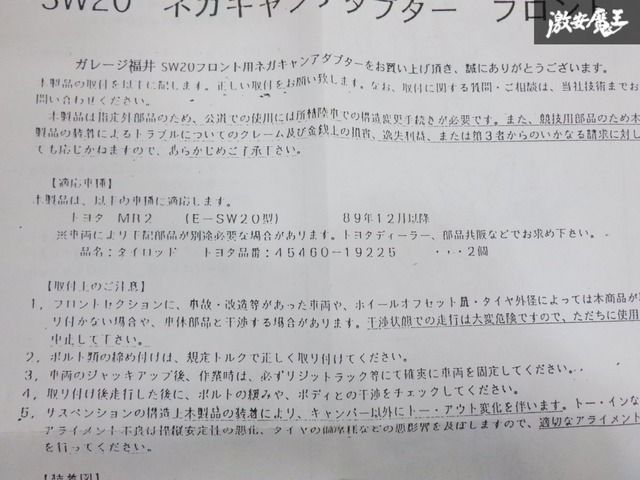 SW20 ネガキャンアダプター フロント
激安魔王
ガレージ福井 SW20フロント用ネガキャンアダプターをお買い上げ頂き、誠にありがとうございます。
本製品の取付を以下に記します。正しい取付をお願い致します。なお、取付に関する質問・ご相談は、当社技術までお
問い合わせください。
本製品は指定外部品のため、公道での使用には所轄陸事での構造変更手続きが必要です。また、競技用部品のため本
製品の装着によるトラブルについてのクレーム及び金銭上の損害、逸失利益、または第3者からのいかなる請求に対し
ても応じかねますので、あらかじめご了承下さい。
【適応車種】
本製品は、以下の車種に適応します。
トヨタ MR2 (E-SW20型) 89年12月以降
※車両により下記部品が別途必要な場合があります。トヨタディーラー、部品共販などでお求め下さい。
品名：タイロッド トヨタ品番：45460-19225 ・・・2個
【取付上のご注意】
1，フロントセクションに、事故・改造等があった車両や、ホイールオフセット量・タイヤ外径によっては本商品が
り付かない場合や、車体部品と干渉する場合があります。干渉状態での走行は大変危険ですので、ただちに使用
中止して下さい。
2，ボルト類の締め付けは、規定トルクで正しく取り付けてください。
3，車両のジャッキアップ後、作業時は、必ずリジットラック等にて確実に車両を固定してください。
4，取り付け後走行した後に、ボルトの緩みや、ボディとの干渉をチェックしてください。
5，サスペンションの構造上本製品の装着により、キャンバー以外にトー・アウト変化を伴います。トー・インな
アライメント不良は操縦安定性の悪化、タイヤの偏摩耗などの悪影響を及ぼしますので、適切なアライメント
を行ってください。
【装着図】